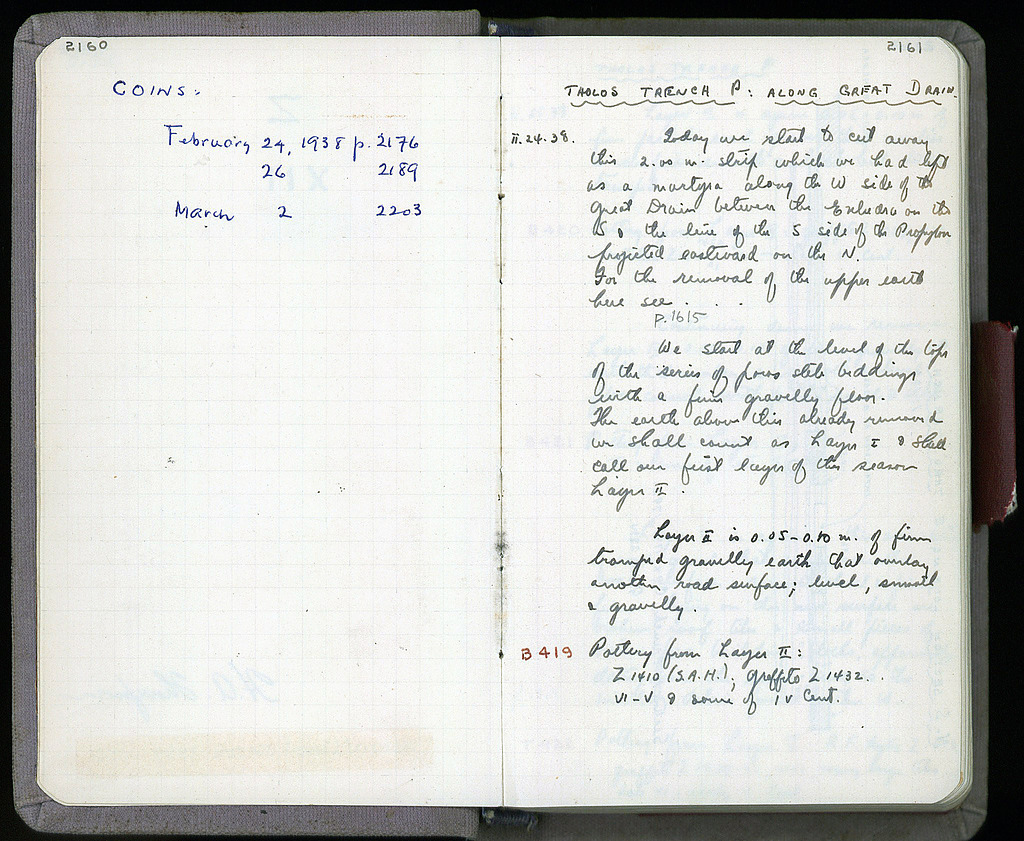 2160
COINS.
February 24, 1938 p. 2176
26 2189
March 2 2203
2161
THOLOS TRENCH P: ALONG GREAT DRAIN.
II.24.38. Today we start to cut away
this 2.00 m. strip which we had left
as a martyra along the W side of the
Great Drain between the Exhedra on the
S & the line of the S side of the Propylon
projected eastward on the N.
For the removal of the upper earth
here see . . .
p. 1615
We start at the level of the tops
of the series of poros stele beddings
with a firm gravelly floor.
The earth above this already removed
we shall count as Layer I & shall
call our first layer of this season
Layer II.
Layer II is 0.05-0.10 m. of firm
tramped gravelly earth that overlay
another road surface; level, smooth
& gravelly.
B 419 Pottery from Layer II:
Z 1410 (S.A.H.); graffito Z 1432.
VI-V & some of IV Cent.